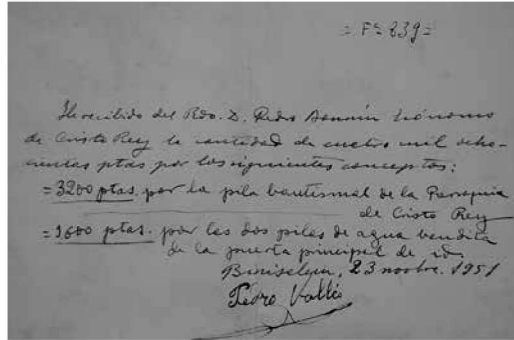 = Fª 839 =
He recibido del Rdo. D. Pedro Bonnín Ecónomo
de Cristo Rey la cantidad de cuatro mil ocho-
cientas ptas por los siguientes conceptos:
= 3200 ptas. por la pila bautismal de la Parroquia
de Cristo Rey
= 1600 ptas. por las dos pilas de agua bendita
de la puerta principal de id.
Binisalem, 23 novbre. 1951
Pedro Vallés